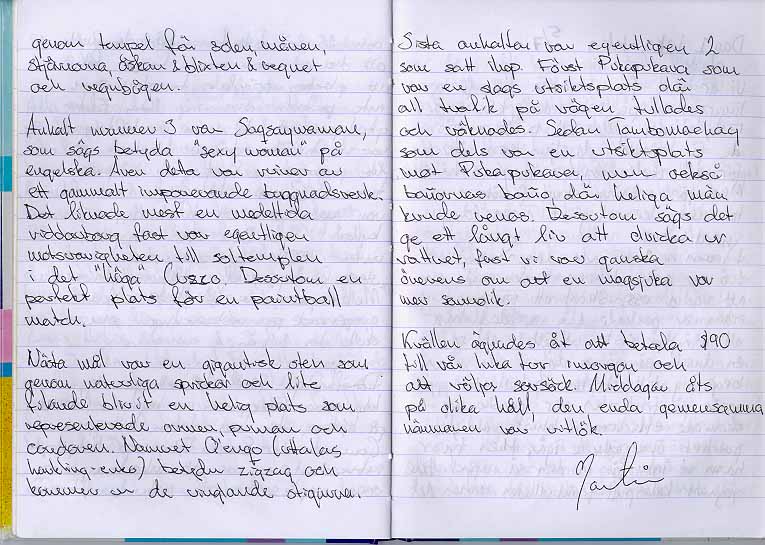 genom tempel för solen, månen,
stjärnorna, åskan & blixten & regnet
och regnbågen.
Anhalt nummer 3 var Saqsaywaman,
som sägs betyda "sexy woman" på
engelska. Även detta var ruiner av
ett gammalt imponerande byggnadsverk.
Det liknade mest en medeltida
riddarborg fast var egentligen
motsvarigheten till soltemplen
i det "låga" Cuszo. Dessutom en
perfekt plats för en paintball
match.
Nästa mål var en gigantisk sten som
genom naturliga sprickor och lite
filande blivit en helig plats som
representerade ormen, puman och
condoren. Namnet Q'enqo (uttalas
harkling-enko) betyder zigzag och
kommer av de vinglande stigarna.
Sista anhalten var egentligen 2
som satt ihop. Först Pukapukara som
var en slags utsiktsplats där
all trafik på vägen tullades
och räknades. Sedan Tambomachay
som dels var en utsiktsplats
mot Pukapukara, men också
bañornas baño, där heliga män
kunde renas. Dessutom sägs det
ge ett långt liv att dricka ur
vattnet, fast vi var ganska
överens om att en magsjuka var
mer sannolik.
Kvällen ägnades åt att betala $90
till vår Inka tor imorgon och
att välja sovsäck. Middagar åts
på olika håll, den enda gemensamma
nämnaren var vitlök.
Martin